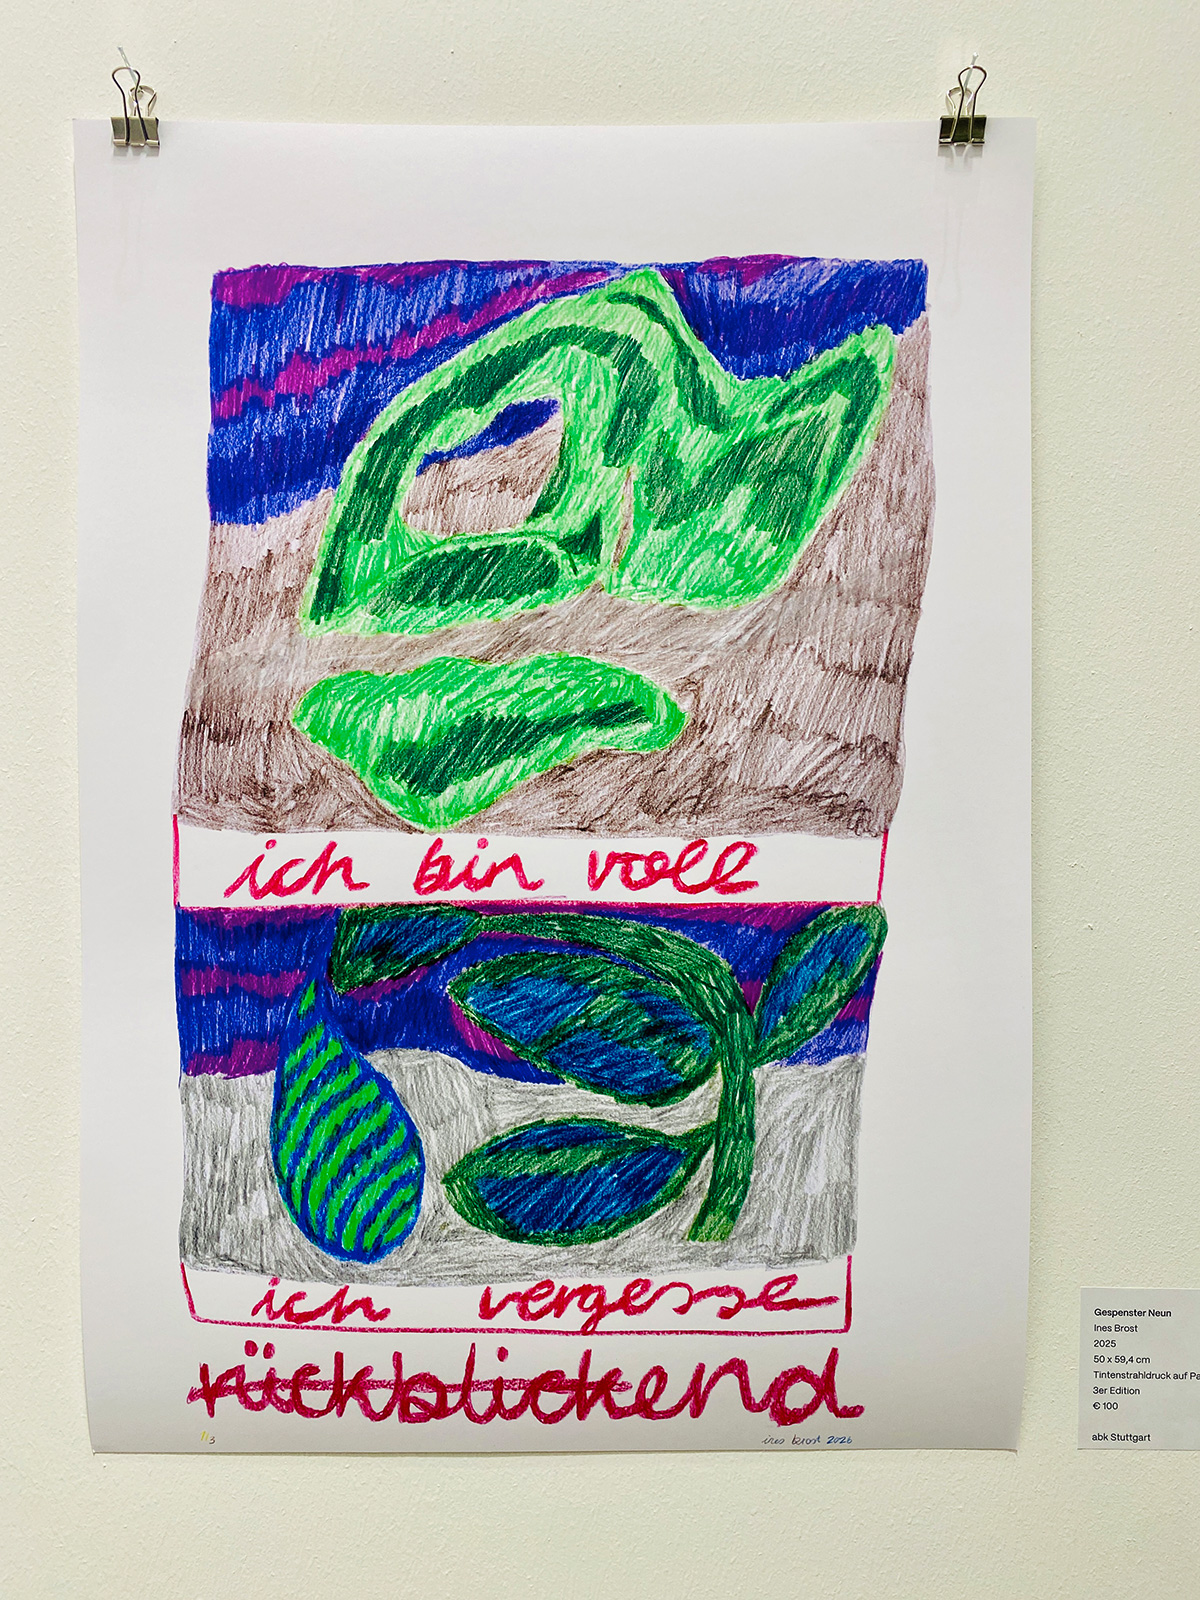 ich bin voll
ich vergesse
rückblickend
1/3
ines brost 2026
Gespenster Neun
Ines Brost
2025
50 x 59,4 cm
Tintenstrahldruck auf Pa
3er Edition
€ 100
abk Stuttgart